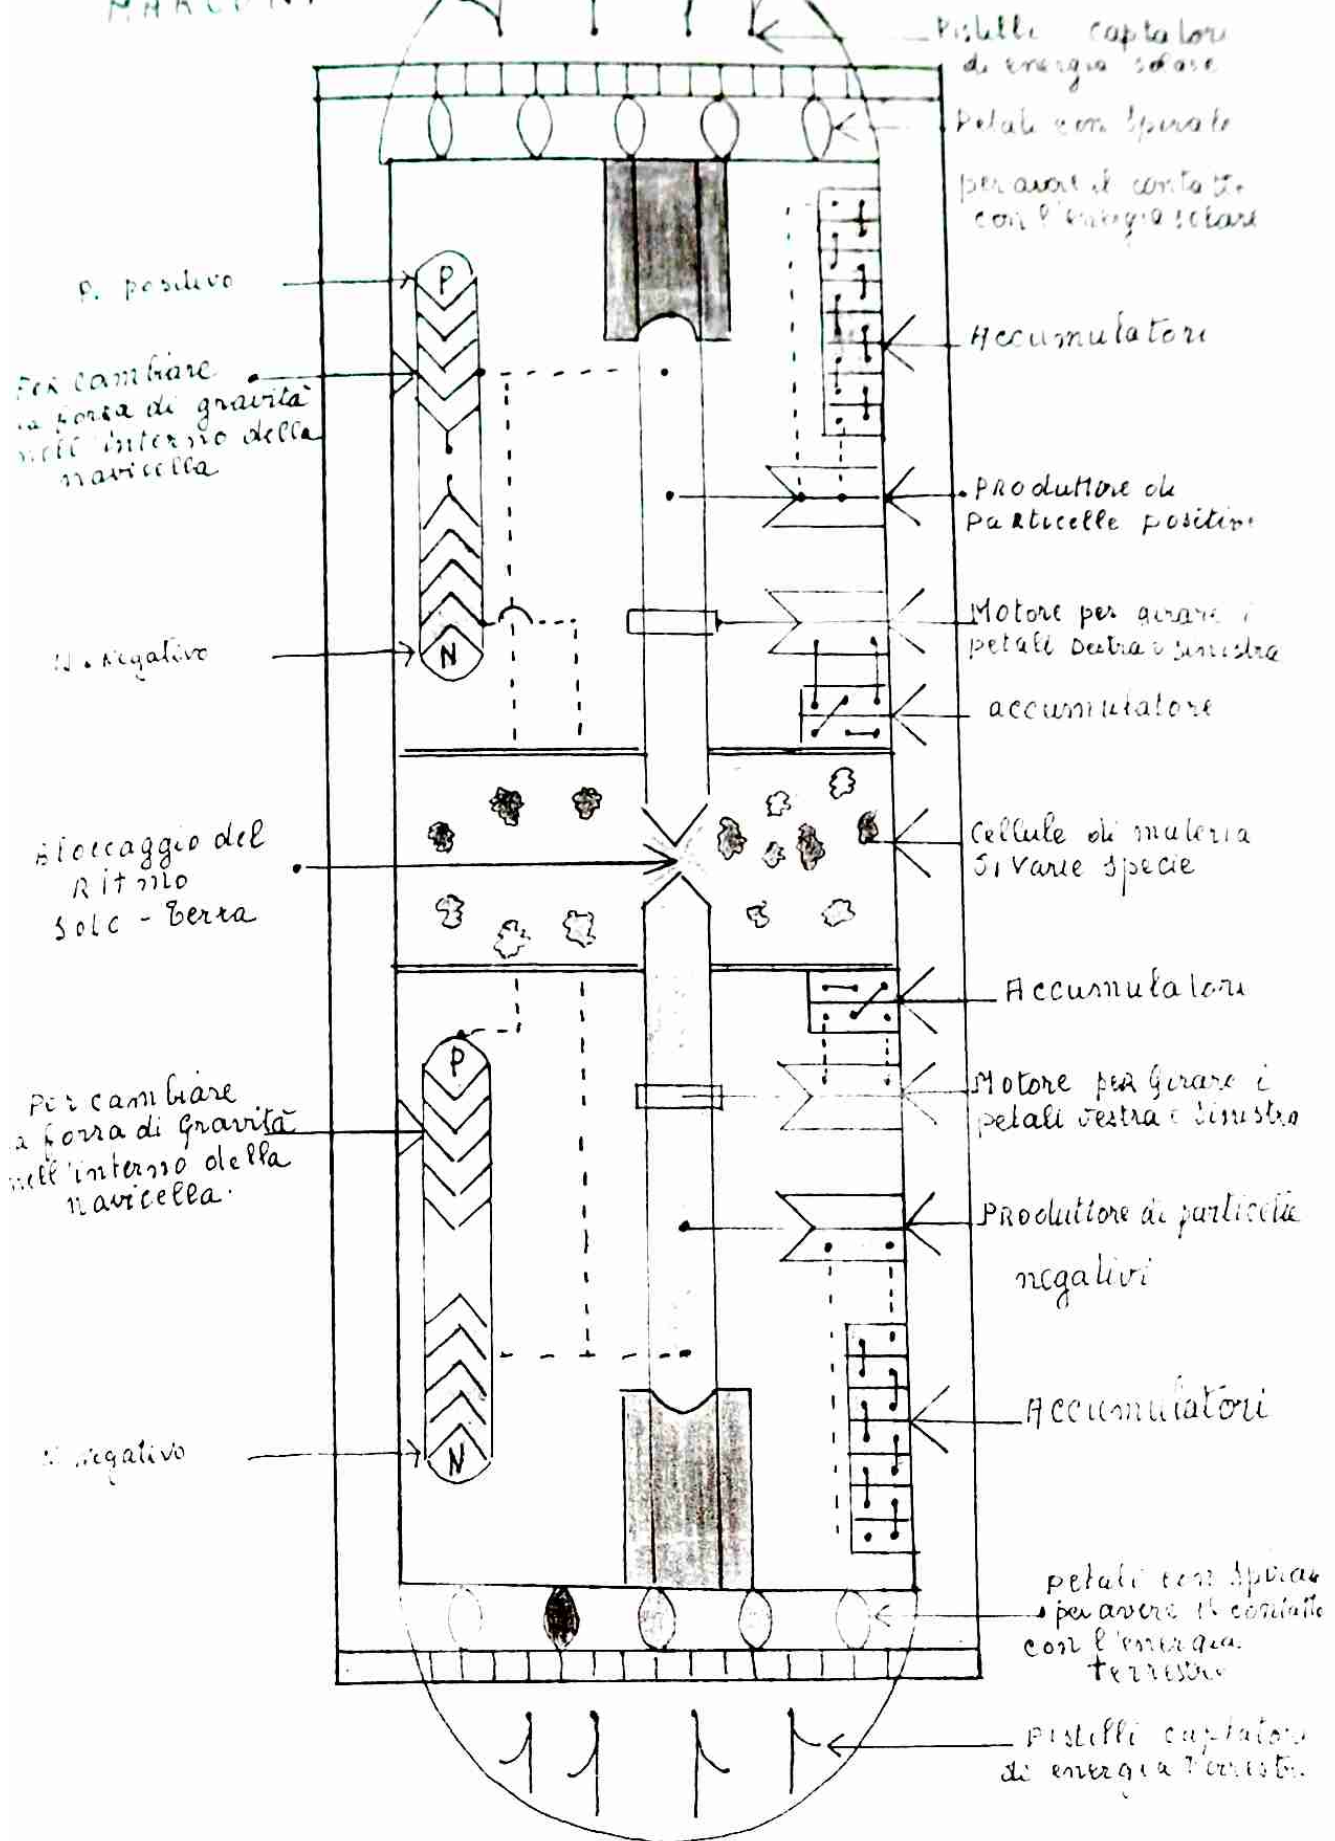 MARCONI
Pistilli captatori
di energia solare
Petali con spirale
per avere il contatto
con l'energia solare
P. positivo
Accumulatori
Per cambiare
la forza di gravità
nell'interno della
navicella
Produttore di
particelle positive
Motore per girare i
petali destra e sinistra
N. Negativo
accumulatore
Bloccaggio del
Ritmo
Sole - Terra
Cellule di materia
di varie specie
Accumulatori
Per cambiare
la forza di Gravità
nell'interno della
navicella.
Motore per Girare i
petali destra e sinistra
Produttore di particelle
negativi
Accumulatori
N negativo
petali con spirale
per avere il contatto
con l'energia
terrestre
Pistilli captatori
di energia terrestre
P
N
P
N